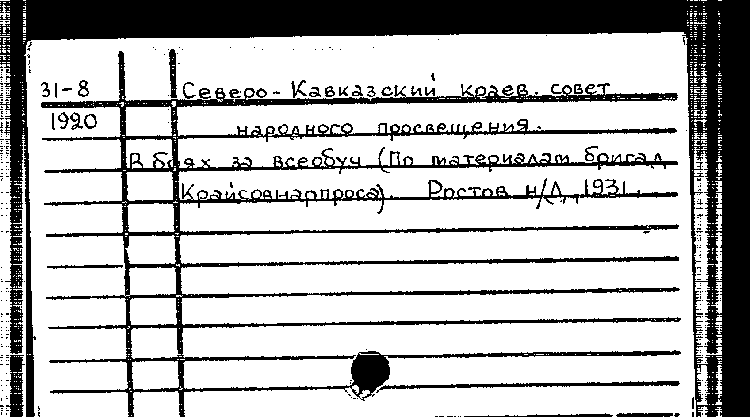 31-8 Северо-Кавказский краев. совет
1920 народного просвещения.
В боях за всеобуч (По материалам бригад
Крайсовнарпроса). Ростов н/Д., 1931.